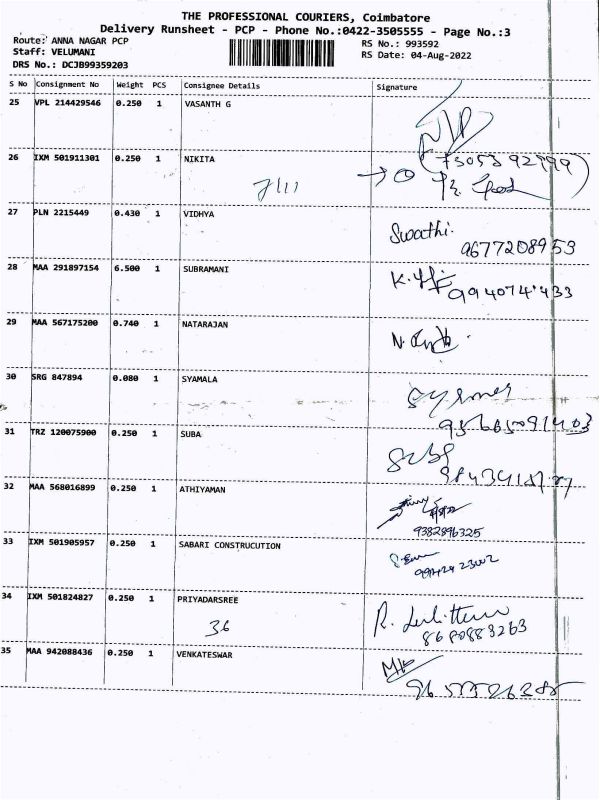 THE PROFESSIONAL COURIERS, Coimbatore
Delivery Runsheet - PCP - Phone No.:0422-3505555 - Page No.:3
Route: ANNA NAGAR PCP
RS No.: 993592
Staff: VELUMANI
RS Date: 04-Aug-2022
DRS No.: DCJB99359203
S No Consignment No Weight PCS Consignee Details Signature
25 VPL 214429546 0.250 1 VASANTH G
26 IXM 501911301 0.250 1 NIKITA
27 PLN 2215449 0.430 1 VIDHYA
Swathi.
9677208953
28 MAA 291897154 6.500 1 SUBRAMANI
29 MAA 567175200 0.740 1 NATARAJAN
30 SRG 847894 0.080 1 SYAMALA
31 TRZ 120075900 0.250 1 SUBA
32 MAA 568016899 0.250 1 ATHIYAMAN
9382896325
33 IXM 501905957 0.250 1 SABARI CONSTRUCUTION
34 IXM 501824827 0.250 1 PRIYADARSREE
36
8680883263
35 MAA 942088436 0.250 1 VENKATESWAR